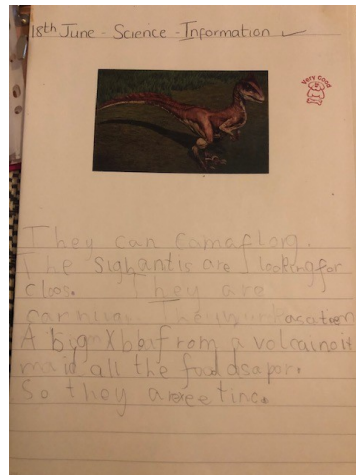 18th June - Science - Information
Very Good
They can camaflog.
The sighantis are looking for
cloos. They are
A big
from a volcaino it
maid all the foud dsapor.
So they are